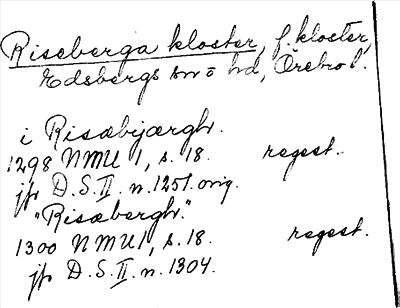 Riseberga kloster, f. kloster,
Edsbergs sn o hd, Örebro l.
i Risæbyærgh.
1298 NMU 1, s. 18. regest.
jfr D.S. II. n. 1251. orig.
"Risæbergh."
1300 NMU 1, s. 18. regest.
jfr D.S. II. n. 1304.